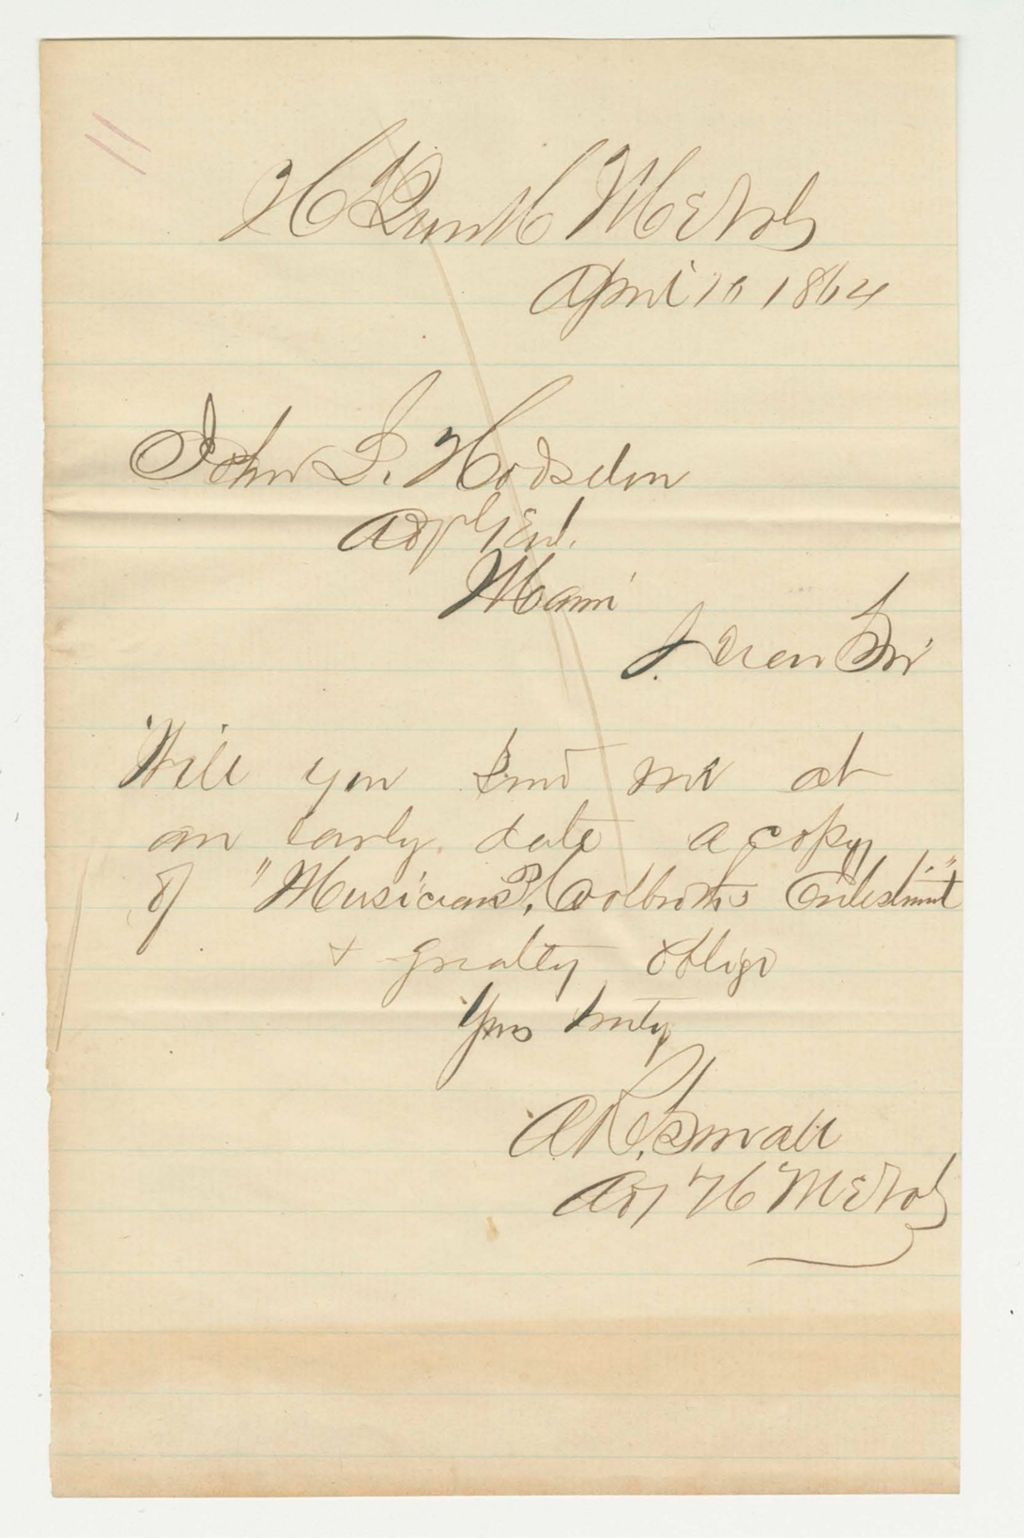 Hd Qurs 16 Me Vols
April 10 1864
John L. Hodsdon
Adj Genl.
Maine
Dear Sir
Will you send me at
an early date a copy
of "Musician P. Colbroths Enlistment"
& greatly oblige
Yours truly
A.R. Small
Adj 16 Me Vols